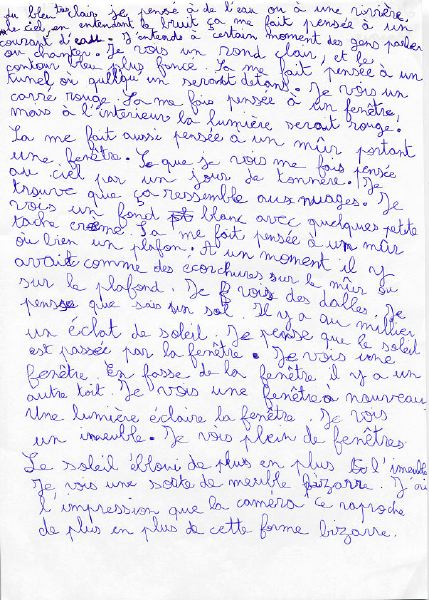 du bleu très clair je pensé à de l'eau ou à une rivière,
ciel, en entendent le bruit ça me fait pensée à un
courant d'eau. J'entends à certain moment des gens parler
ou chanter. Je vois un rond clair, et le
contour bleu plus foncé. Sa me fait pensée à un
tunel où quelqu'un serait detans. Je vois un
carré rouge. Sa me fais pensée à un fenêtre,
mais à l'intérieur la lumière serait rouge.
Sa me fait aussi pensée a un mûr portant
une fenêtre. Se que je vois me fais pensée
au ciel par un jour de tonnère. Je
trouve que ça ressemble aux nuages. Je
vois un fond blanc avec quelques petite
tache crème. Sa me fait pensée à un mûr
ou bien un plafon. A un moment il y
avait comme des écorchures sur le mûr ou
sur le plafond. Je vois des dalles. Je
pense que sais un sol. Il y a au millier
un éclat de soleil. Je pense que le soleil
est passée par la fenêtre. Je vois une
fenêtre. En fasse de la fenêtre il y a un
autre toit. Je vois une fenêtre à nouveau.
Une lumière éclaire la fenêtre. Je vois
un imeuble. Je vois plein de fenêtres
Le soleil ébloui de plus en plus l'imeuble
Je vois une sorte de meuble bizarre. J'ai
l'impression que la caméra ce raproche
de plus en plus de cette forme bizarre.